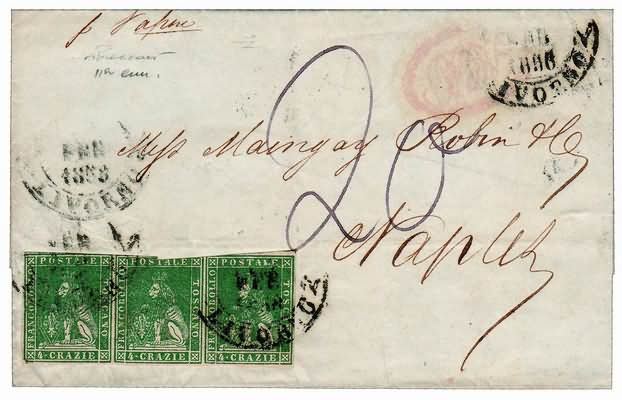 p Vapore
LIVORNO
20
Mess Maingay Robin & Co
FEB
1858
LIVORNO
Naples
FRANCOBOLLO POSTALE TOSCANO
4·CRAZIE
FRANCOBOLLO POSTALE TOSCANO
4·CRAZIE
FRANCOBOLLO POSTALE TOSCANO
4·CRAZIE
LIVORNO